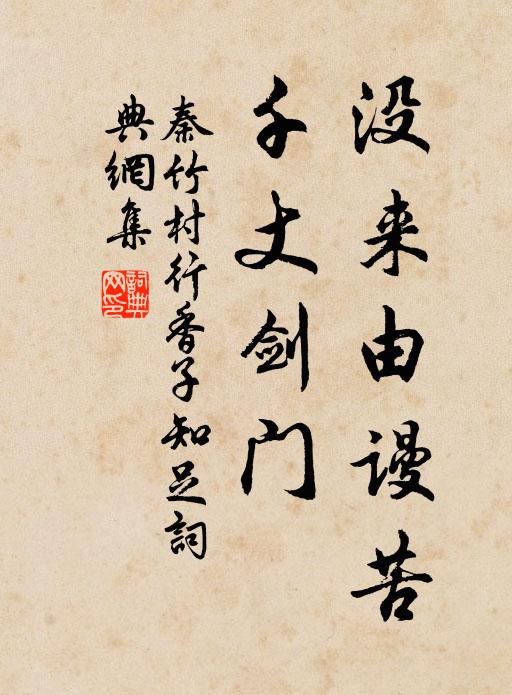 没来由谩苦
千丈剑门
秦竹村行香子知足詞
典網集
詞典
网印